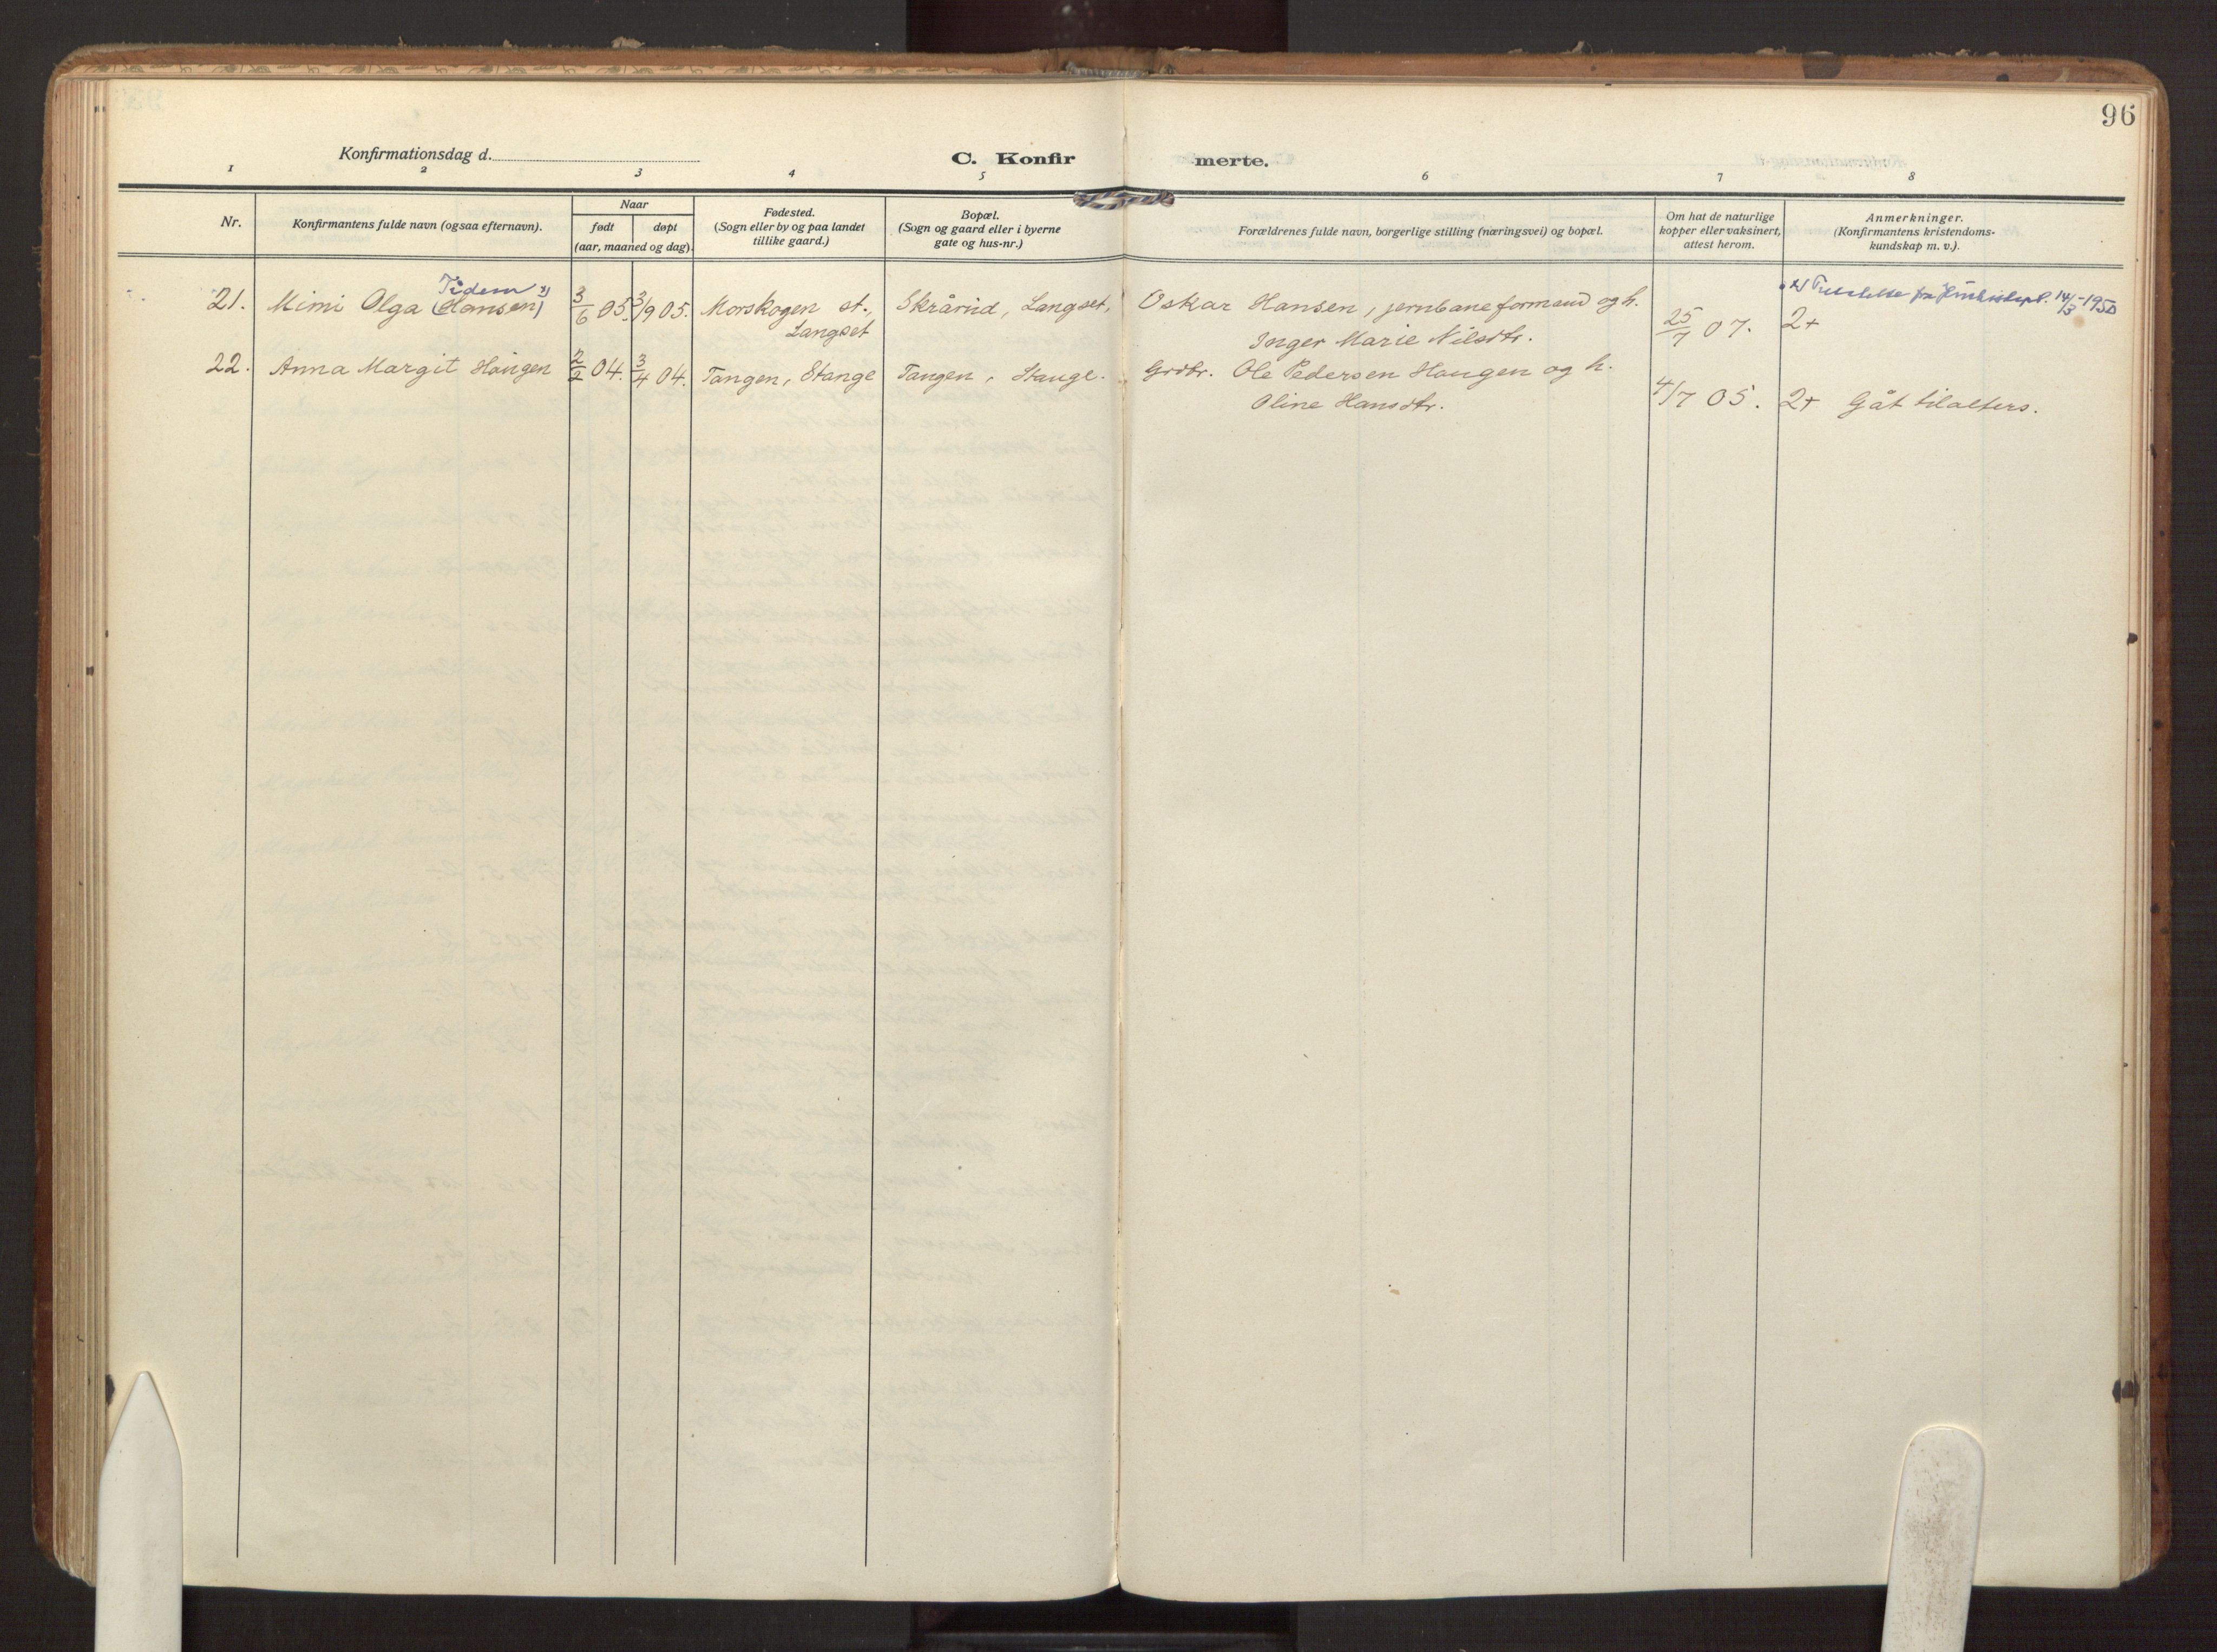 96
Konfirmationsdag d.
C. Konfir merte.
1 2 3 4 5 6 7 8
Nr.
Konfirmantens fulde navn (ogsaa efternavn).
Naar
født
døpt
(aar, maaned og dag).
Fødested.
(Sogn eller by og paa landet
tillike gaard.)
Bopæl.
(Sogn og gaard eller i byerne
gate og hus-nr.)
Forældrenes fulde navn, borgerlige stilling (næringsvei) og bopæl.
Om hat de naturlige
kopper eller vaksinert,
attest herom.
Anmerkninger.
(Konfirmantens kristendoms-
kundskap m. v.).
Tidem x)
x) fra 14/3-1950
21. Mimi Olga (Hansen) 3/6 05. 3/9 05. Morskogen st., Skrårud, Langset, Oskar Hansen, jernbaneformand og h. 25/7 07. 2+
Langset Inger Marie Nilsdtr.
22. Anna Margit Haugen 2/2 04. 3/4 04. Tangen, Stange Tangen, Stange. Grdbr. Ole Pedersen Haugen og h.
Oline Hansdtr. 4/7 05. 2+ Gåt tilalters.